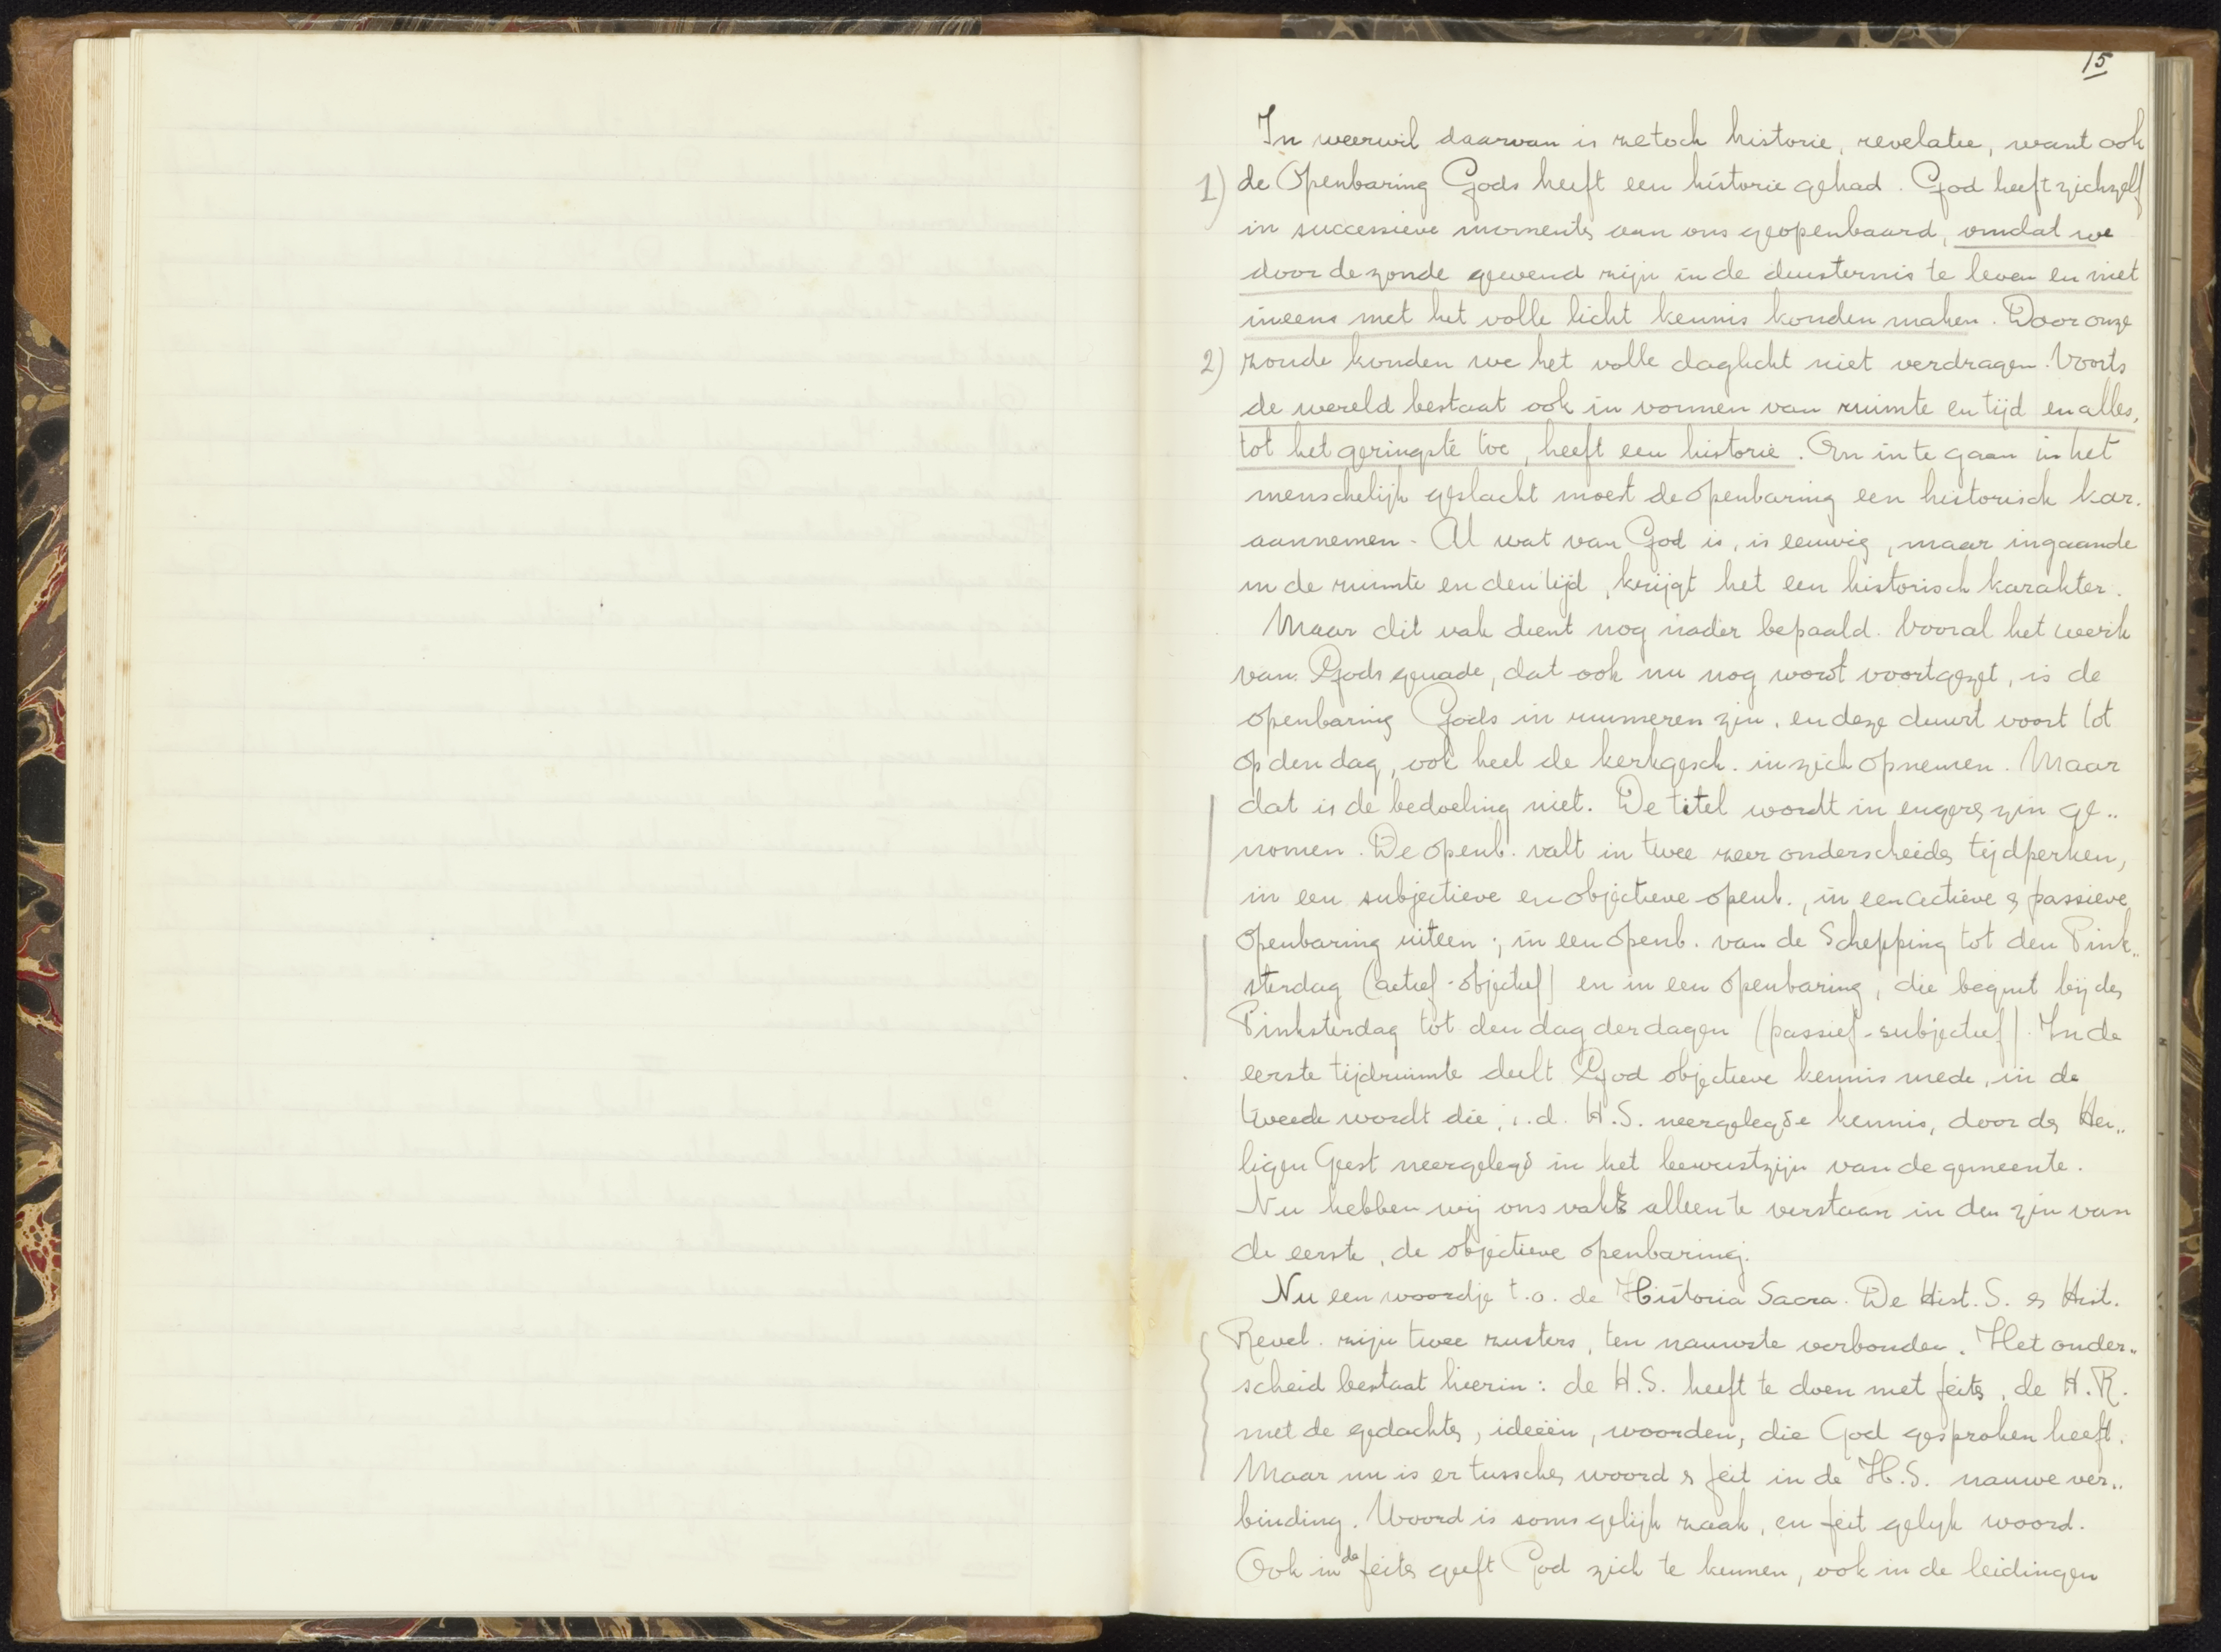 15
In weerwil daarvan is ze toch historie, revelatie, want ook
1) de Openbaring Gods heeft een historie gehad. God heeft zichzelf
in successieve momenten aan ons geopenbaard, omdat we
door de zonde gewend zijn in de duisternis te leven en niet
ineens met het volle licht kennis konden maken. Door onze
2) zonde konden we het volle daglicht niet verdragen. Voorts
de wereld bestaat ook in vormen van ruimte en tijd en alles,
tot het geringste toe, heeft een historie. Om in te gaan in het
menschelijk geslacht moest de openbaring een historisch kar.
aannemen. Al wat van God is, is eeuwig, maar ingaande
in de ruimte en den tijd, krijgt het een historisch karakter.
Maar dit vak dient nog nader bepaald. Vooral het werk
van Gods genade, dat ook nu nog wordt voortgezet, is de
openbaring Gods in ruimeren zin, en deze duurt voort tot
op den dag, ook heel de kerkgesch. in zich opnemen. Maar
dat is de bedoeling niet. De titel wordt in engere zin ge„
nomen. De openb. valt in twee zeer onderscheiden tijdperken,
in een subjectieve en objectieve openb., in een actieve & passieve
openbaring uiteen; in een openb. van de Schepping tot den Pink„
sterdag (actief-objectief) en in een openbaring, die begint bij den
Pinksterdag tot den dag der dagen (passief-subjectief). In de
eerste tijdruimte deelt God objectieve kennis mede, in de
tweede wordt die, i.d. H.S. neergelegde kennis, door den Hei„
ligen Geest neergelegd in het bewustzijn van de gemeente.
Nu hebben wij ons vak alleen te verstaan in den zin van
de eerste, de objectieve openbaring.
Nu een woordje t.o. de Historia Sacra. De Hist. S. & Hist.
Revel. zijn twee zusters, ten nauwste verbonden. Het onder„
scheid bestaat hierin: de H.S. heeft te doen met feiten, de H.R.
met de gedachten, ideeën, woorden, die God gesproken heeft.
Maar nu is er tusschen woord & feit in de H.S. nauwe ver„
binding. Woord is soms gelijk zaak, en feit gelijk woord.
Ook in de feiten geeft God zich te kennen, ook in de leidingen